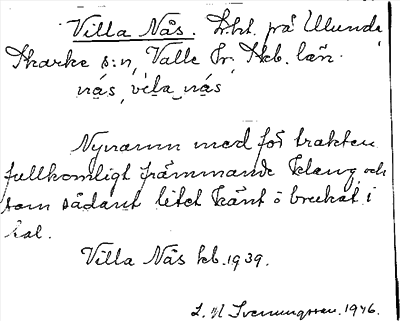 Villa Nås. Lht. på Ulunda
Skarke s:n, Valle hr. Skb. län.
nås, vila nås
Nynamn med för trakten
fullkomligt främmande klang och
som sådant litet känt o brukat i
tal.
Villa Nås kb. 1939.
L. M Svenungsson. 1946.